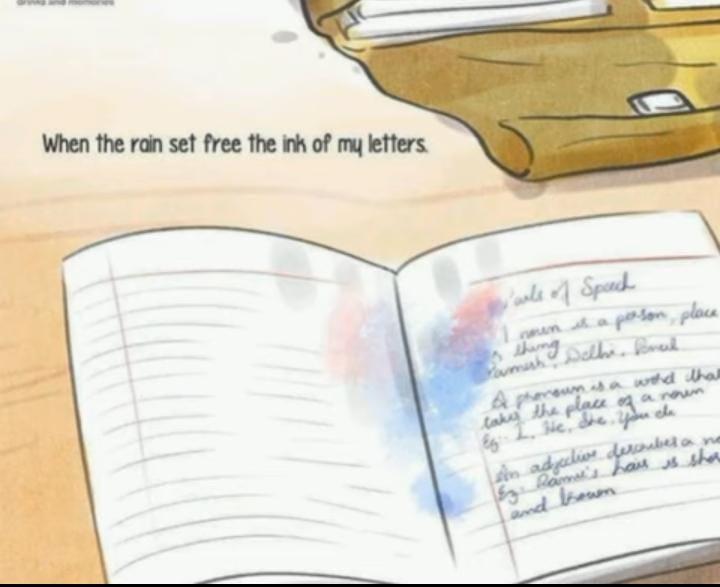 drinks and memories
When the rain set free the ink of my letters.
Parts of Speech
A noun is a person, place
or thing
Ramesh, Delhi, Pencil
A pronoun is a word that
takes the place of a noun
Eg:- I, He, She, You etc
An adjective describes a no
Eg: Ramu's hair is shor
and brown